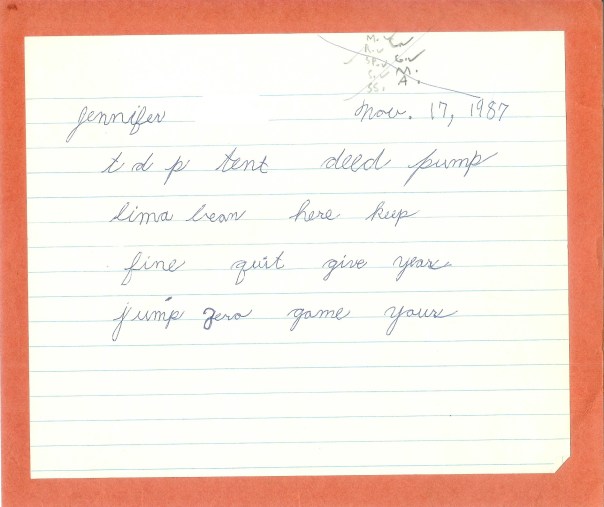 M. ✓
R. ✓
SP. ✓ G. ✓
S. ✓ M.
SS. A.
Jennifer Nov. 17, 1987
t d p tent deed pump
lima bean here keep
fine quit give year
jump zero game your